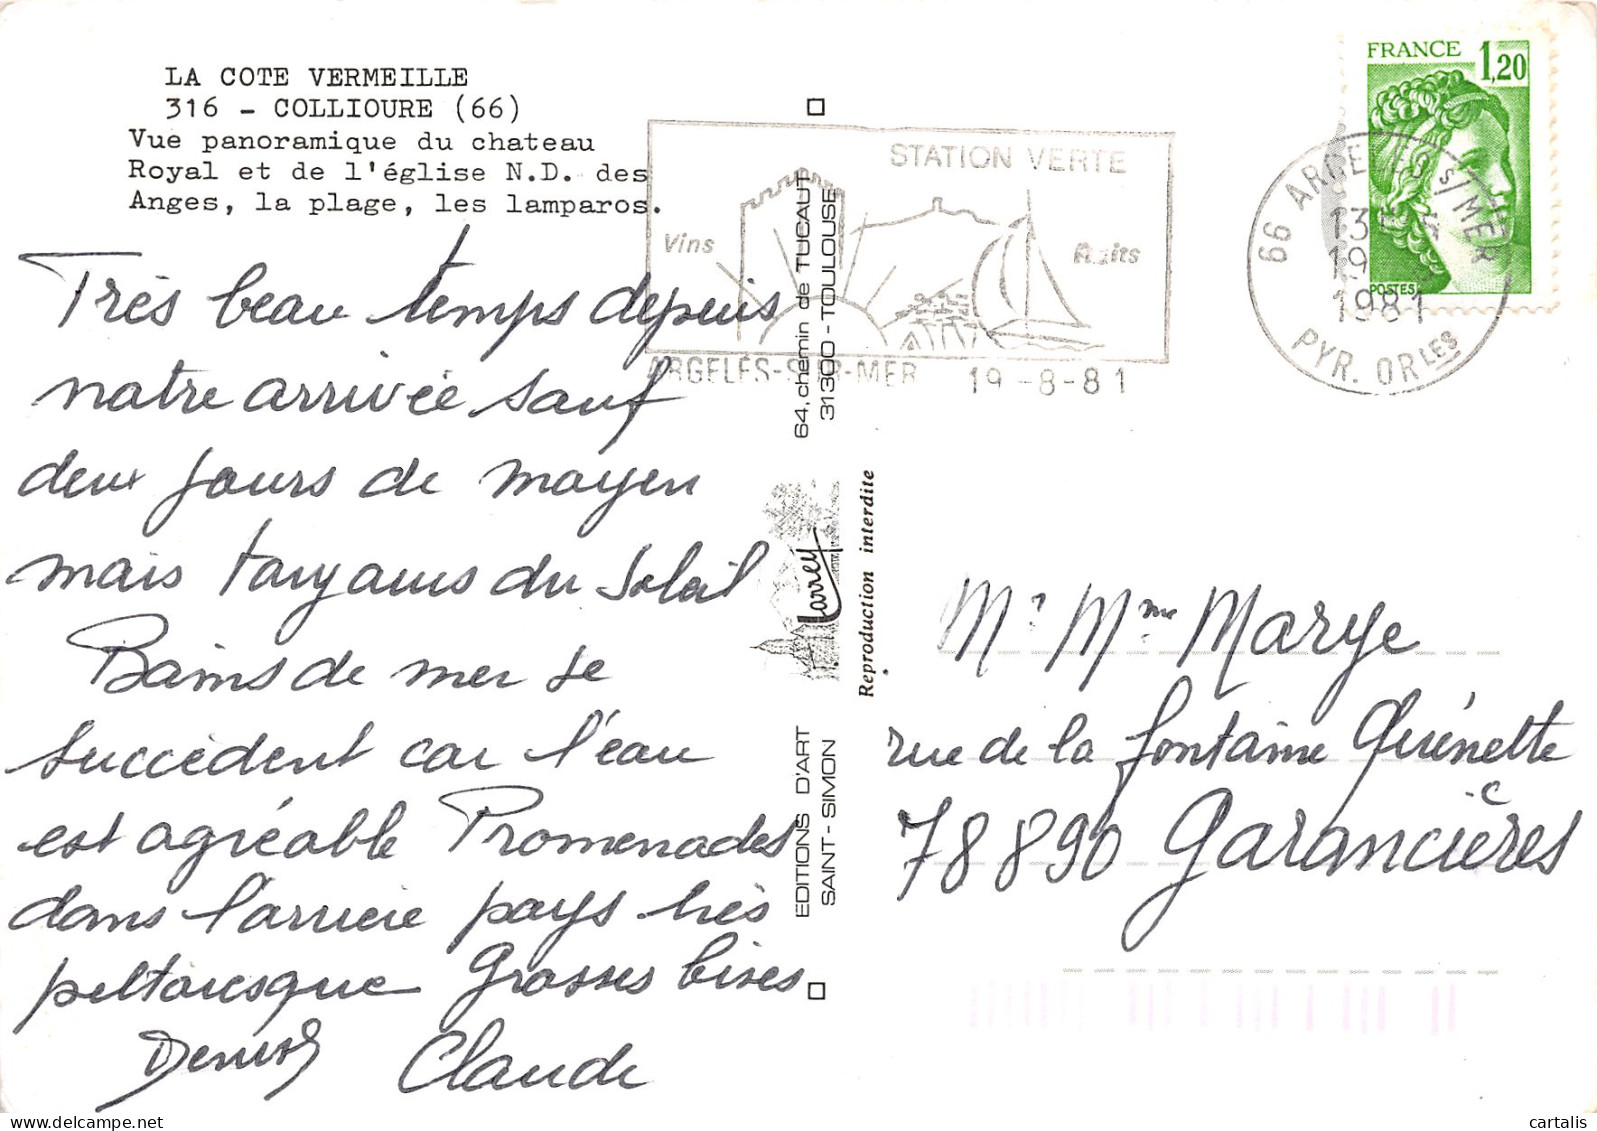 LA COTE VERMEILLE
316 - COLLIOURE (66)
Vue panoramique du chateau
Royal et de l'église N.D. des
Anges, la plage, les lamparos.
Très beau temps depuis
notre arrivée sauf
deux jours de moyen
mais toujours du soleil
Bains de mer se
succèdent car l'eau
est agréable Promenades
dans l'arrière pays très
pittoresque Grosses bises
Denise Claude
STATION VERTE
Vins
ARGELÈS-SUR-MER 19-8-81
66 ARGELES S/MER
13H
19
1981
PYR. ORLES
FRANCE 1,20
POSTES
64, chemin de TUCAUT
31300 - TOULOUSE
Larrey
Reproduction interdite
EDITIONS D'ART
SAINT-SIMON
Mr Mme Marye
rue de la fontaine Quénette
78890 Garancières
cartalis